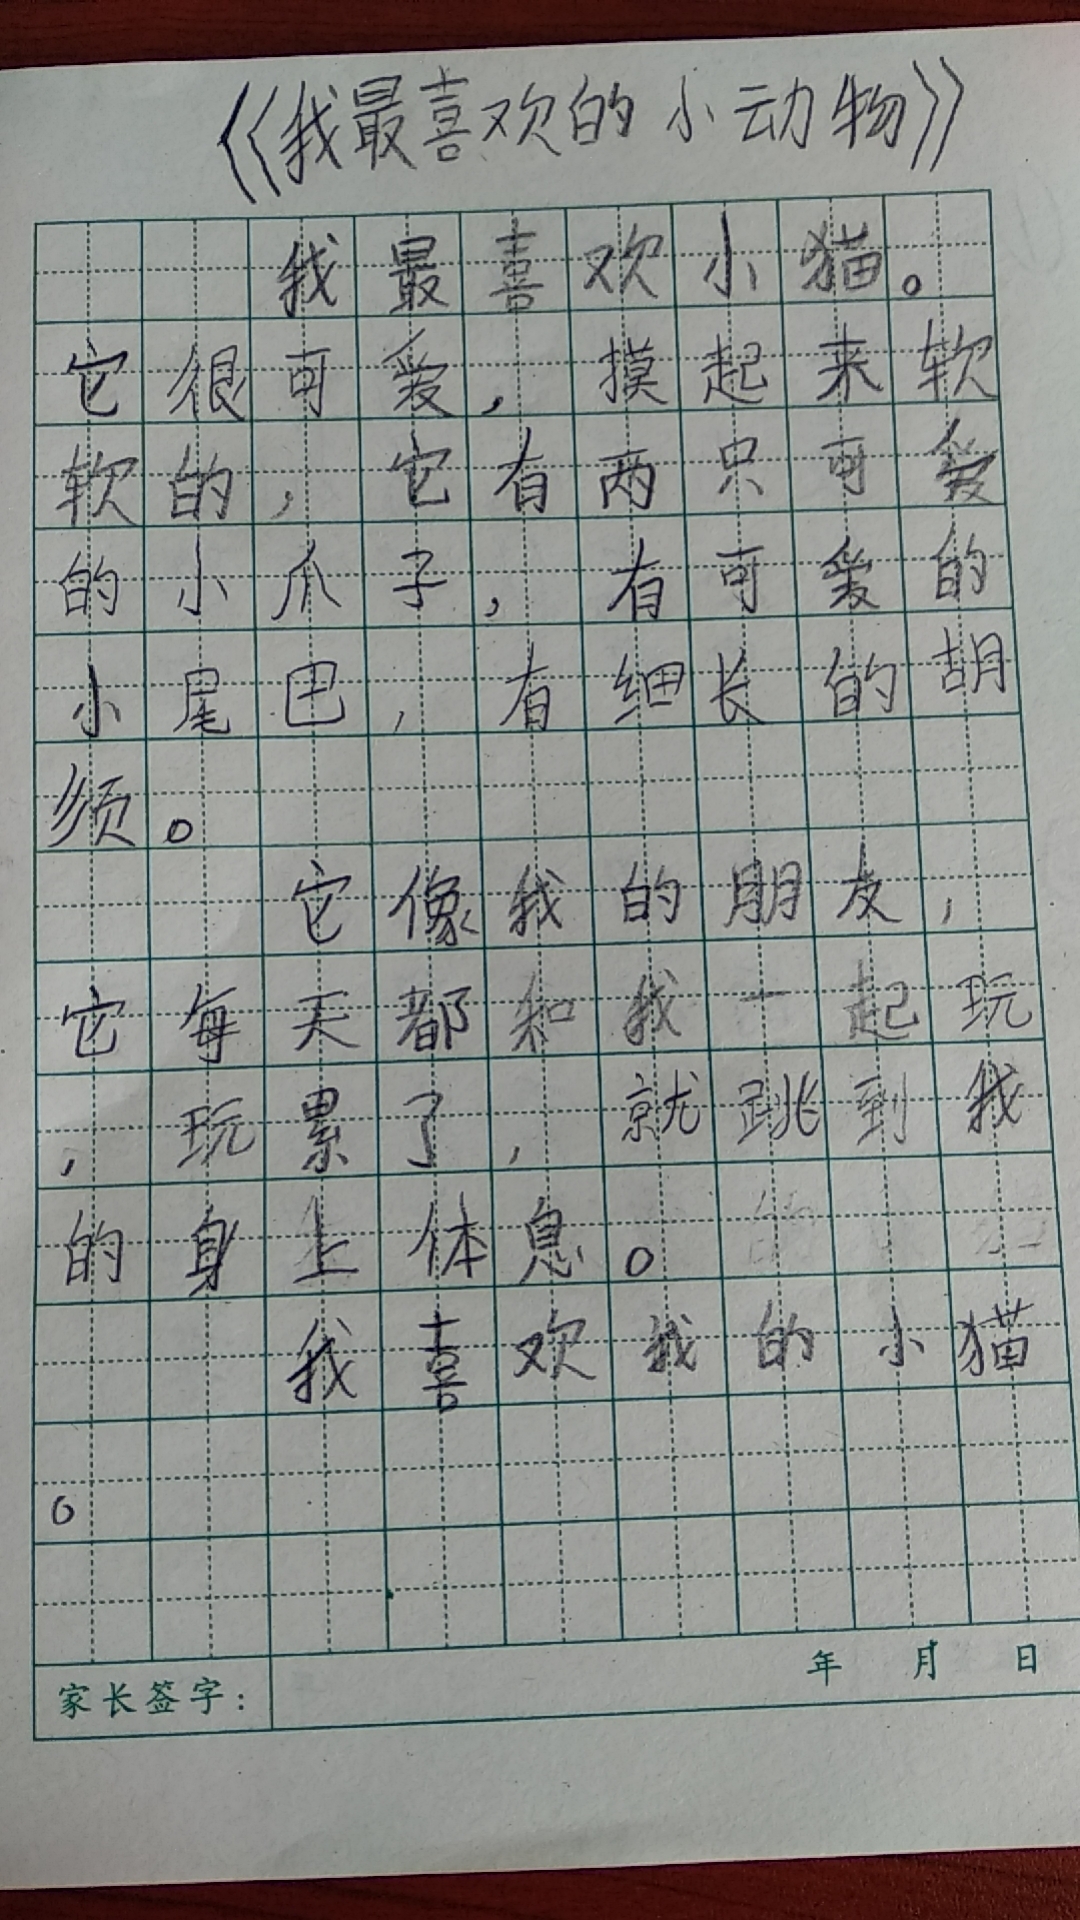 《我最喜欢的小动物》
我最喜欢小猫。
它很可爱，摸起来软
软的，它有两只可爱
的小爪子，有可爱的
小尾巴，有细长的胡
须。
它像我的朋友，
它每天都和我一起玩
，玩累了，就跳到我
的身上体息。
我喜欢我的小猫
。
家长签字：
年 月 日